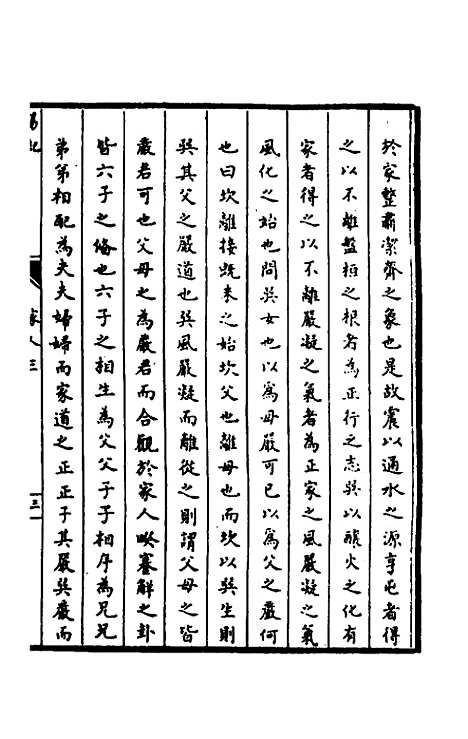 於家整肅潔齊之象也是故震以通水之源亨屯者得
之以不離盤桓之根者為正行之志巽以釀火之化有
家者得之以不離嚴凝之氣者為正家之風嚴凝之氣
風化之始也問巽女也以為母嚴可已以為父之嚴何
也曰坎離接旣未之始坎父也離母也而坎以巽生則
巽其父之嚴道也巽風嚴凝而離從之則謂父母之皆
嚴君可也父母之為嚴君而合觀於家人暌蹇解之卦
皆六子之脩也六子之相生為父父子子相序為兄兄
弟弟相配為夫夫婦婦而家道之正正子其嚴巽嚴而
家人三
三